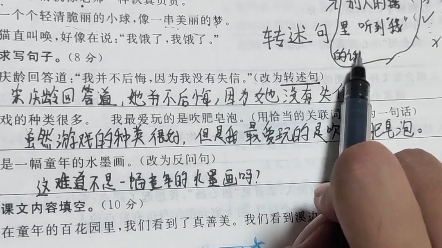 一个个轻清脆丽的小球,像一串美丽的梦。
猫直叫唤,好像在说:“我饿了,我饿了。”
转述句
别人的话
里 听到“我”
求写句子。(8分)
庆龄回答道:“我并不后悔,因为我没有失信。”(改为转述句)
宋庆龄回答道,她并不后悔,因为她没有失
戏的种类很多。 我最爱玩的是吹肥皂泡。(用恰当的关联词 的一句话)
虽然游戏的种类很多,但是我最爱玩的是吹 肥皂泡。
是一幅童年的水墨画。(改为反问句)
这难道不是一幅童年的水墨画吗?
课文内容填空。(10分)
在童年的百花园里,我们看到了真善美。我们看到溪边